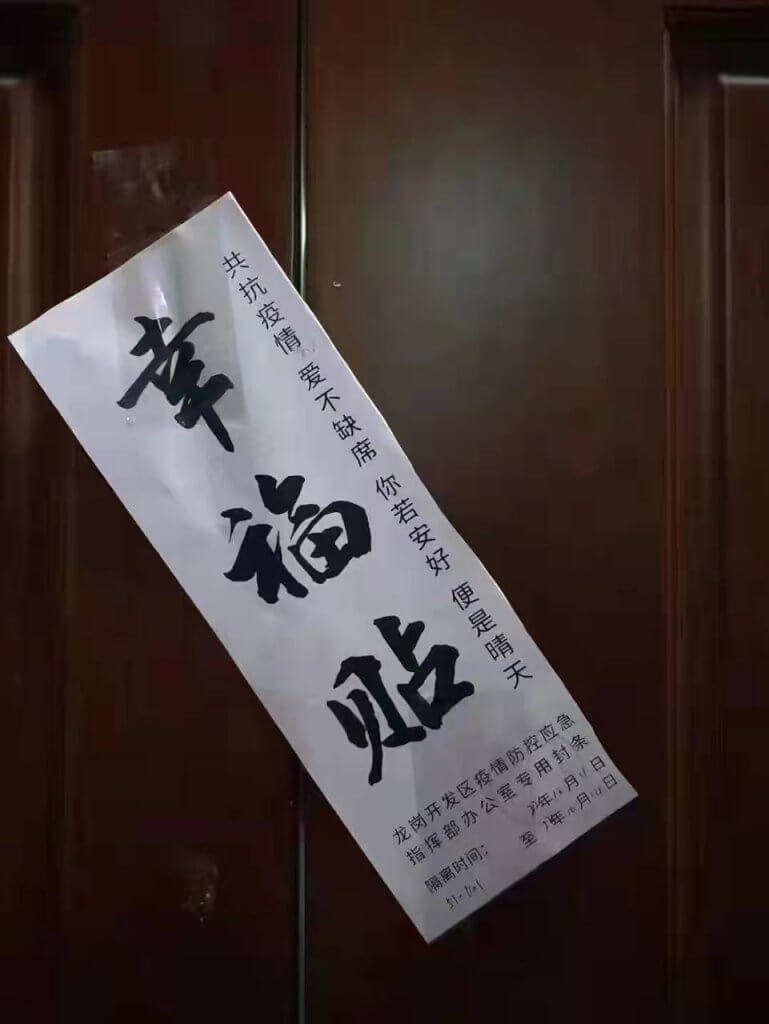 共抗疫情 爱不缺席 你若安好 便是晴天
幸福贴
龙岗开发区疫情防控应急
指挥部办公室专用封条
隔离时间： 年10月11日
至 年10月14日
51-1101